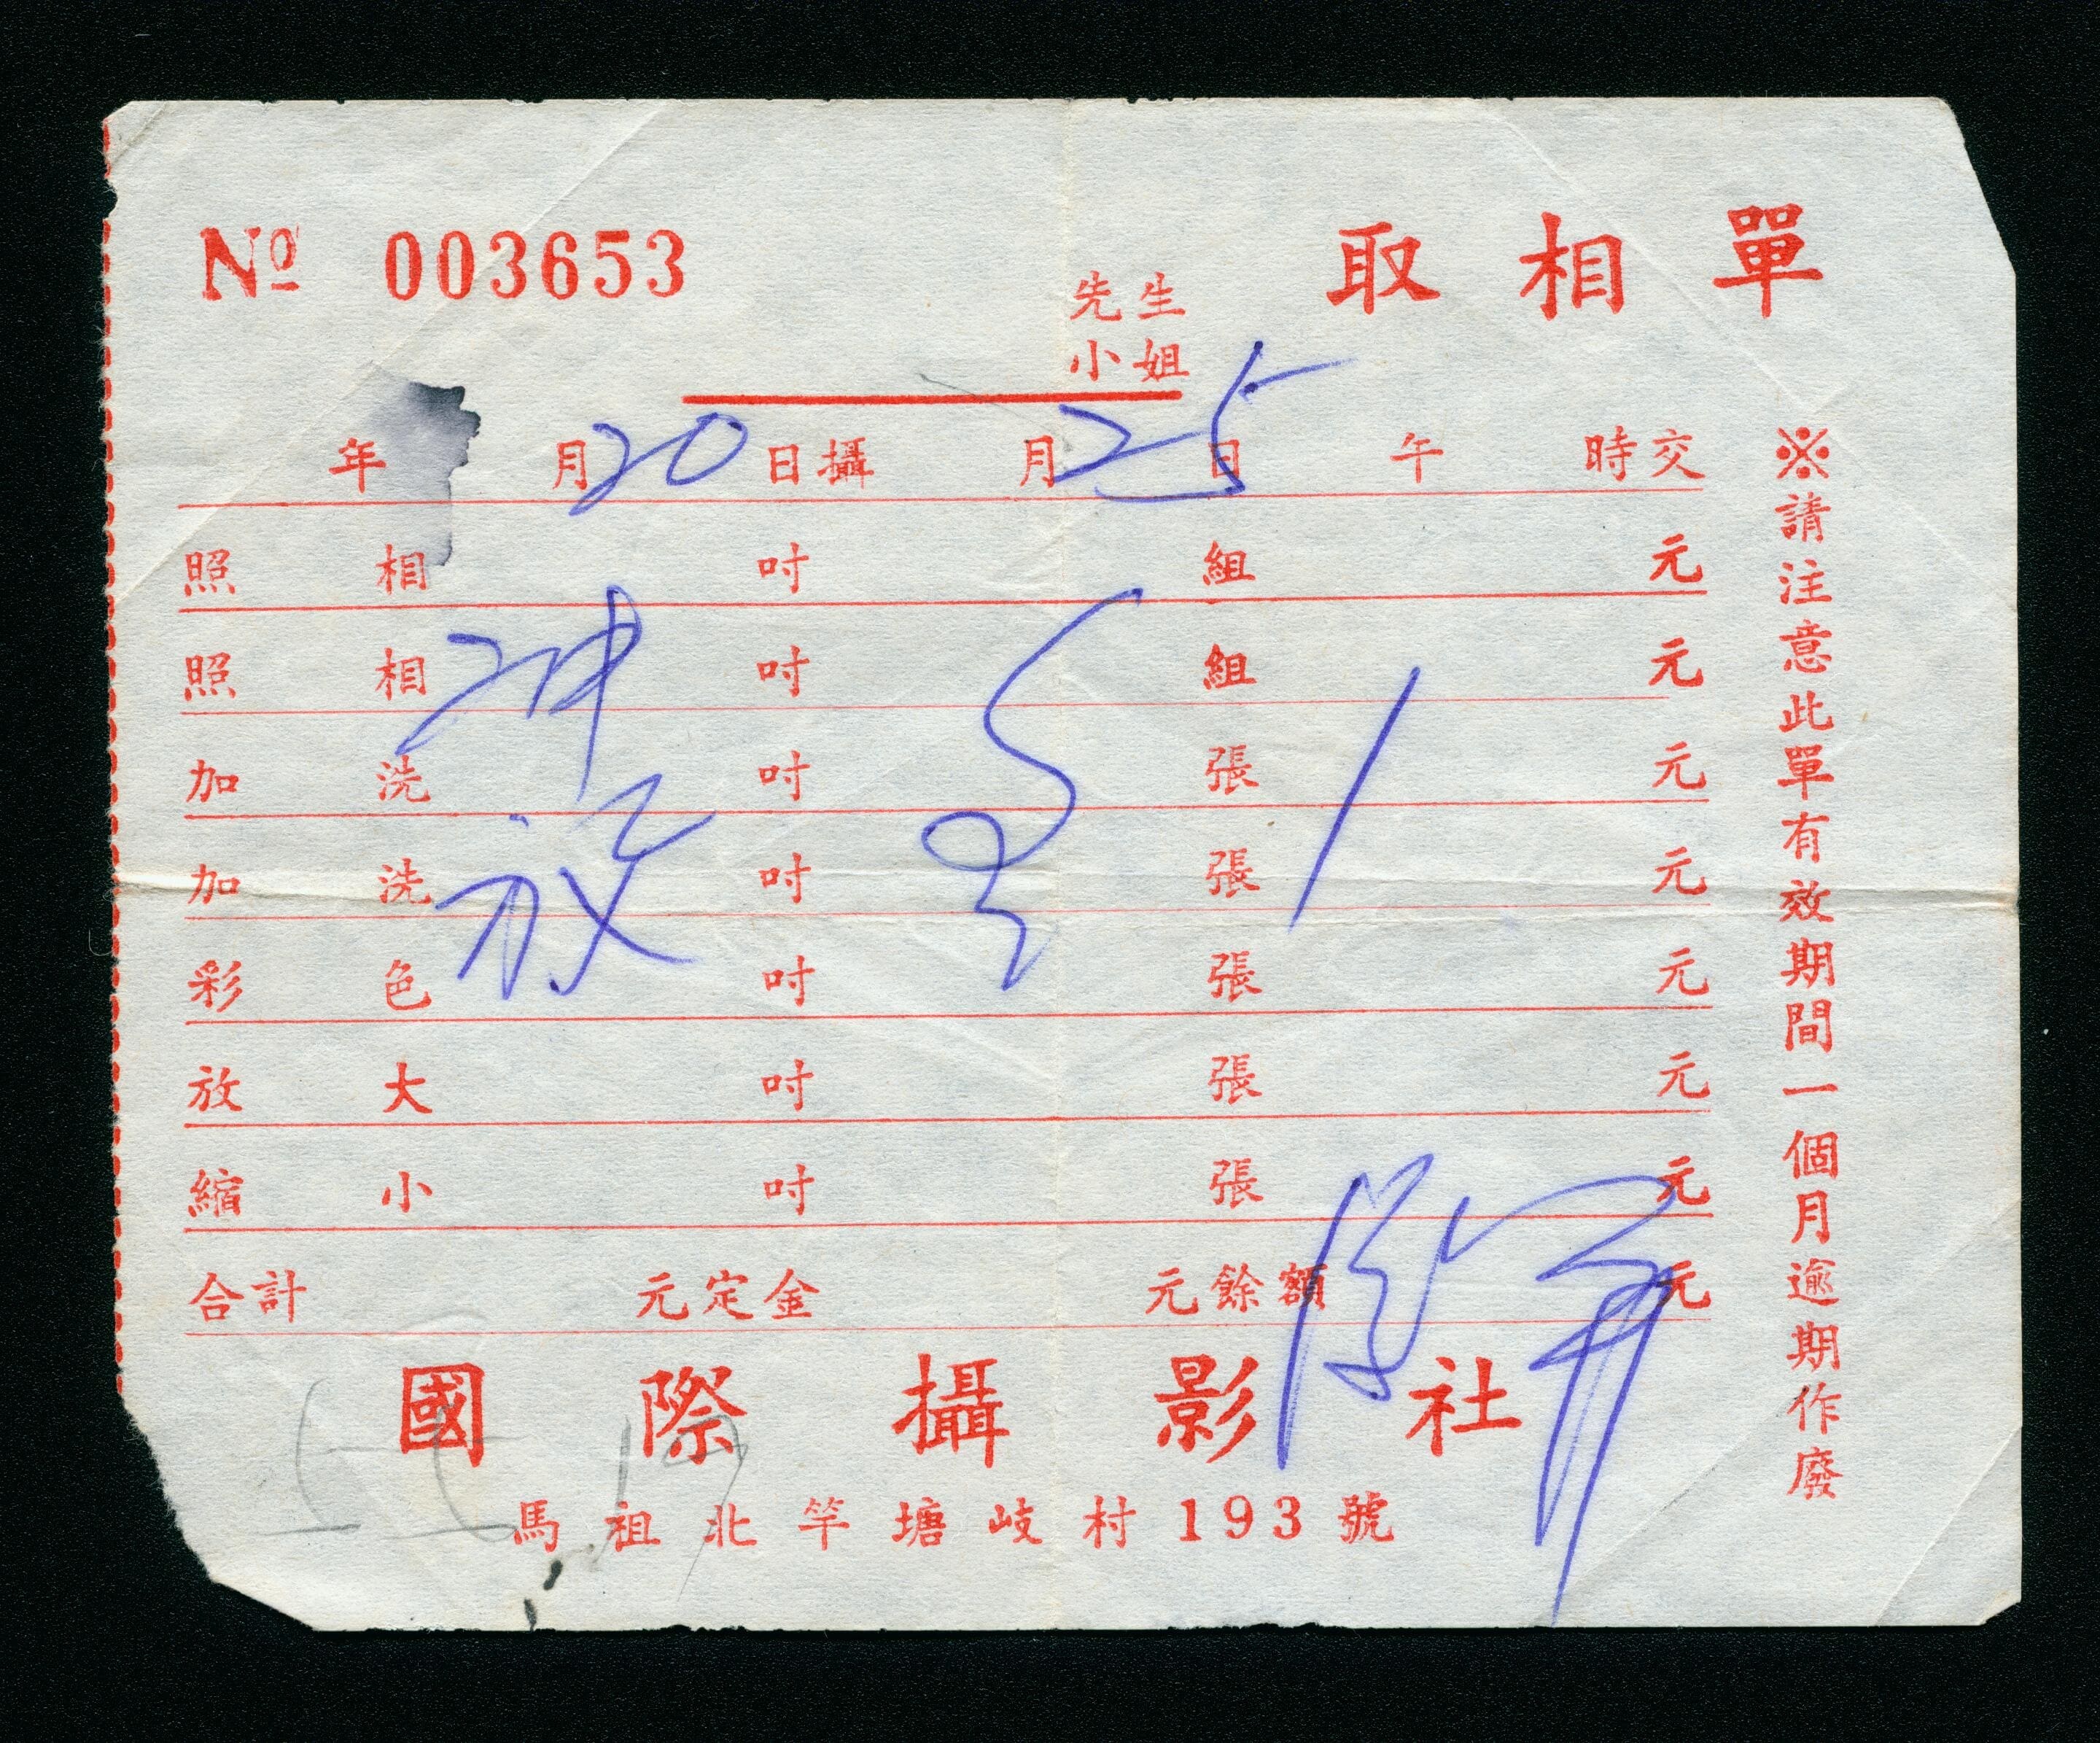 No 003653
取相單
先生
小姐
年 月20日攝 月25日 午 時交
照相 吋 組 元
照相 吋 組 元
冲
加洗 吋 張 元
加洗 吋 張 元
放
彩色 吋 張 元
放大 吋 張 元
縮小 吋 張 元
合計 元定金 元餘額 元
國際攝影社
馬祖北竿塘岐村193號
※請注意此單有效期間一個月逾期作廢